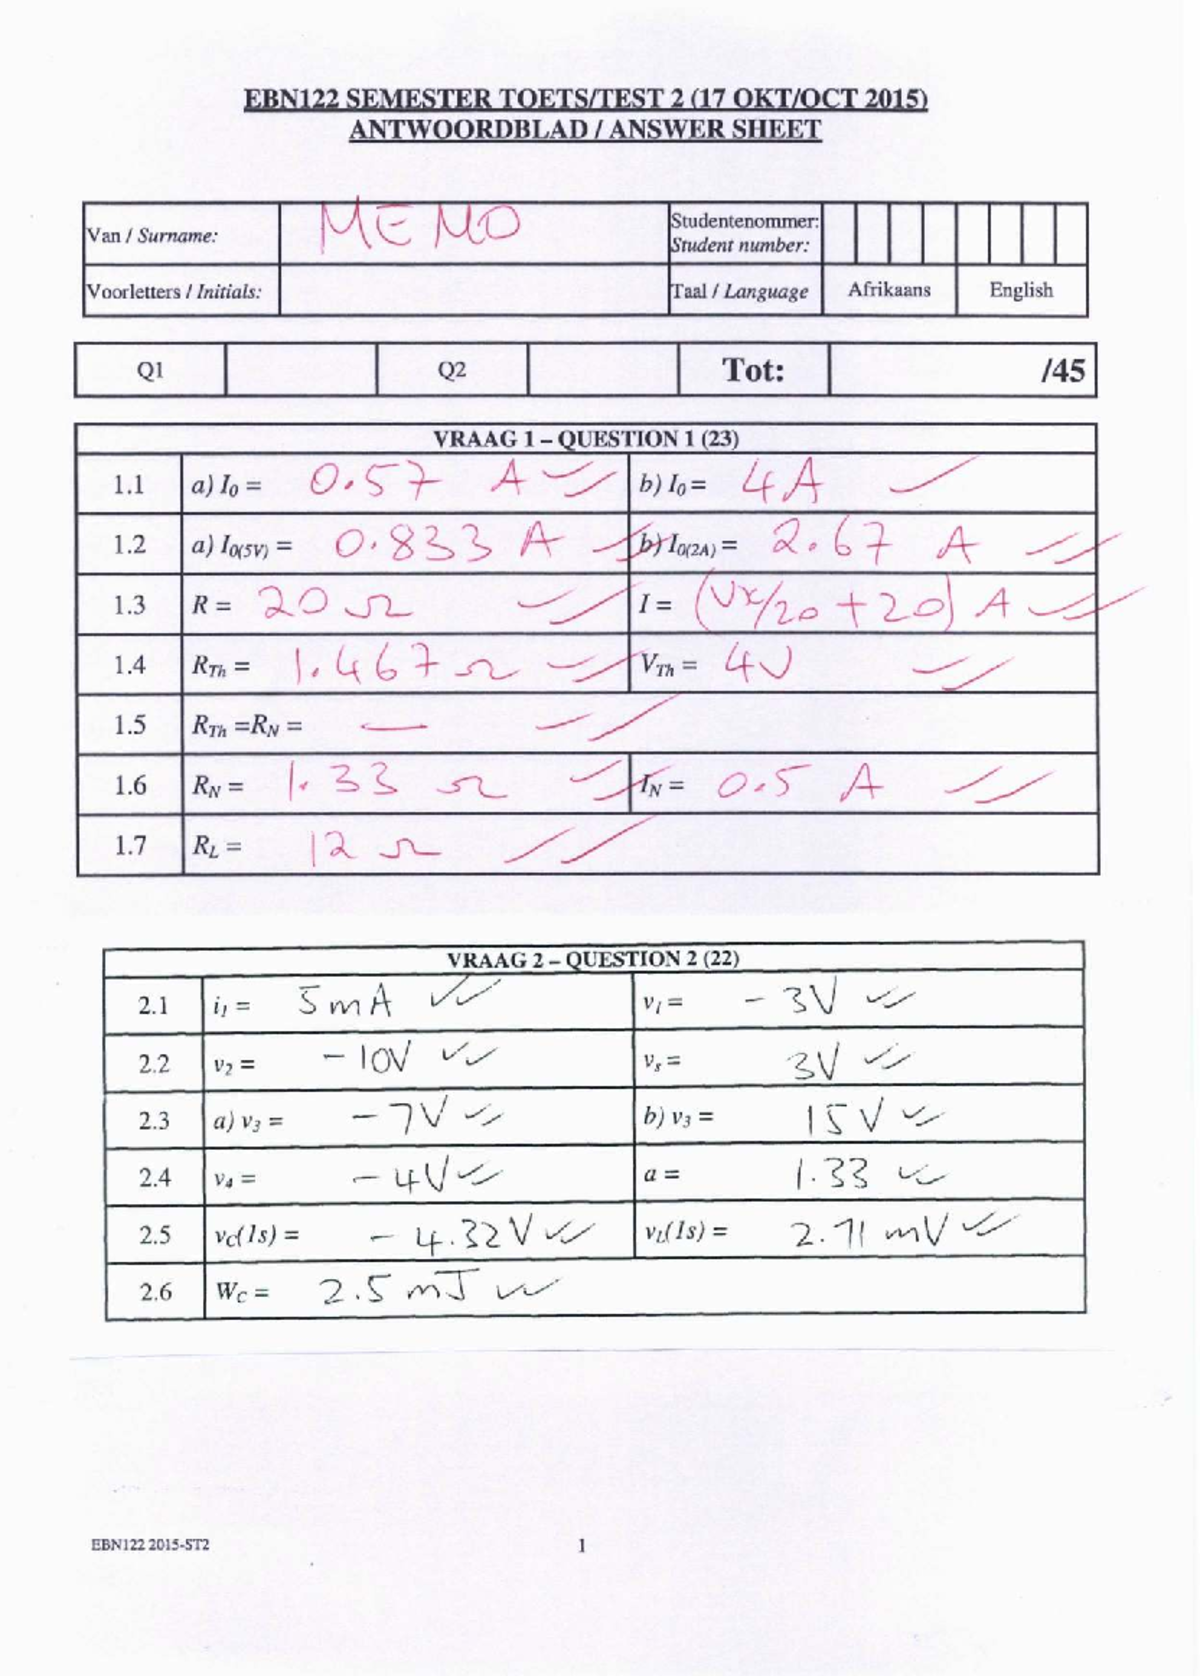 EBN122 SEMESTER TOETS/TEST 2 (17 OKT/OCT 2015)
ANTWOORDBLAD / ANSWER SHEET
Van / Surname: MEMO Studentenommer: Student number:
Voorletters / Initials: Taal / Language Afrikaans English
Q1 Q2 Tot: /45
VRAAG 1 – QUESTION 1 (23)
1.1 a) I0 = 0.57 A b) I0 = 4A
1.2 a) I0(5V) = 0.833 A b) I0(2A) = 2.67 A
1.3 R = 20 Ω I = (Vx/20 + 20) A
1.4 RTh = 1.467 Ω VTh = 4V
1.5 RTh =RN = —
1.6 RN = 1.33 Ω IN = 0.5 A
1.7 RL = 12 Ω
VRAAG 2 – QUESTION 2 (22)
2.1 i1 = 5mA v1 = -3V
2.2 v2 = -10V vs = 3V
2.3 a) v3 = -7V b) v3 = 15V
2.4 v4 = -4V a = 1.33
2.5 vC(1s) = -4.32V vL(1s) = 2.71 mV
2.6 WC = 2.5 mJ
EBN122 2015-ST2 1